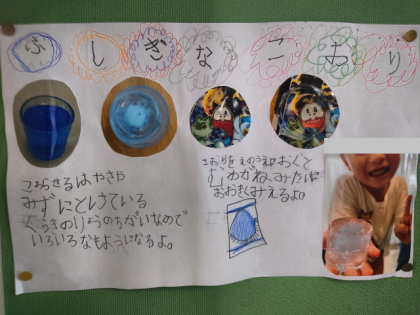 ふしぎなこおり
こおらせるはやさや
みずにとけている
くうきのりょうのちがいなので
いろいろなもようになるよ。
こおりをえのうえにおくと
むしめがねみたいに
おおきくみえるよ。